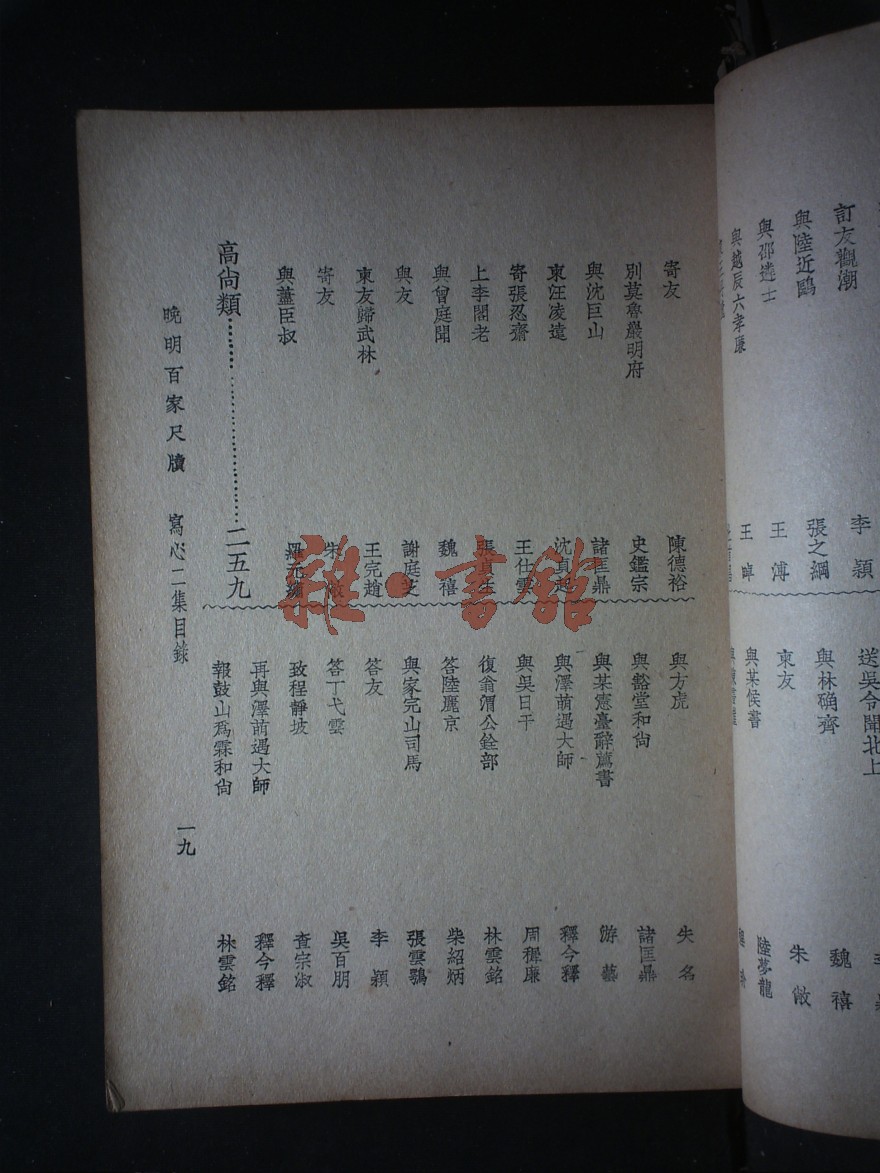 訂友觀潮
李穎
與陸近鷗
張之綱
與邵遠士
王溥
與越辰六孝廉
王晫
送吳令聞北上
與林确齊
魏禧
柬友
朱㒞
與某候書
陸夢龍
寄友
陳德裕
別莫魯巖明府
史鑑宗
與沈巨山
諸匡鼎
柬汪凌遠
沈貞起
寄張忍齋
王仕雲
上李閣老
張貞生
與曾庭聞
魏禧
與友
謝庭芝
柬友歸武林
王完趙
寄友
與藎臣叔
高尙類
二五九
與方虎
失名
與豁堂和尙
諸匡鼎
與某憲臺辭薦書
游藝
與澤萌遇大師
釋今釋
與吳日千
周穉廉
復翁渭公銓部
林雲銘
答陸麗京
柴紹炳
與家完山司馬
張雲鶚
答友
李穎
答丁弋雲
吳百朋
致程靜坡
查宗淑
再與澤萌遇大師
釋今釋
報鼓山爲霖和尙
林雲銘
晚明百家尺牘 寫心二集目錄
一九
雜·書館